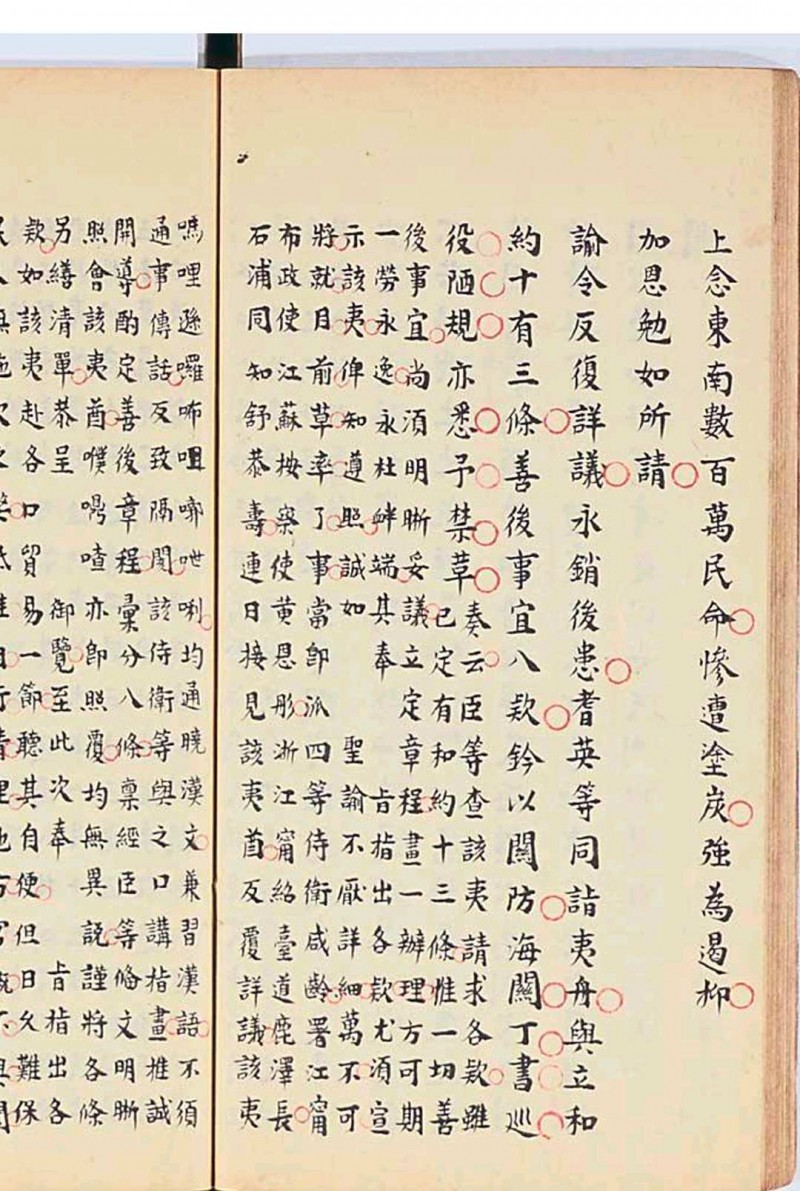 上念東南數百萬民命慘遭塗炭強為遏抑
加恩勉如所請
諭令反復詳議永銷後患耆英等同詣夷舟與立和
約十有三條善後事宜八款鈐以關防海關丁書巡
役陋規亦悉予禁草
奏云臣等查該夷請求各款雖
已定有和約十三條惟一切善
後事宜尚須明晰妥議立定章程畫一辦理方可期
一勞永逸永杜衅端其奉 旨指出各款尤須宣
示該夷俾知遵照誠如 聖諭不厭詳細萬不可
將就目前草率了事當即派四等侍衛咸齡署江甯
布政使江蘇按察使黃恩彤浙江甯紹臺道鹿澤長
石浦同知舒恭壽連日接見該夷酋反覆詳議該夷
嗎哩遜囉咘咀嘟呭唎均通曉漢文兼習漢語不須
通事傳話反致隔閡該侍衛等與之口講指畫推誠
開導酌定善後章程彙分八條稟經臣等脩文明晰
照會該夷酋噗喳亦即照覆均無異說謹將各條
另繕清單恭呈 御覽至此次奉 旨指出各
款如該夷赴各口貿易一節聽其自便但日久難保